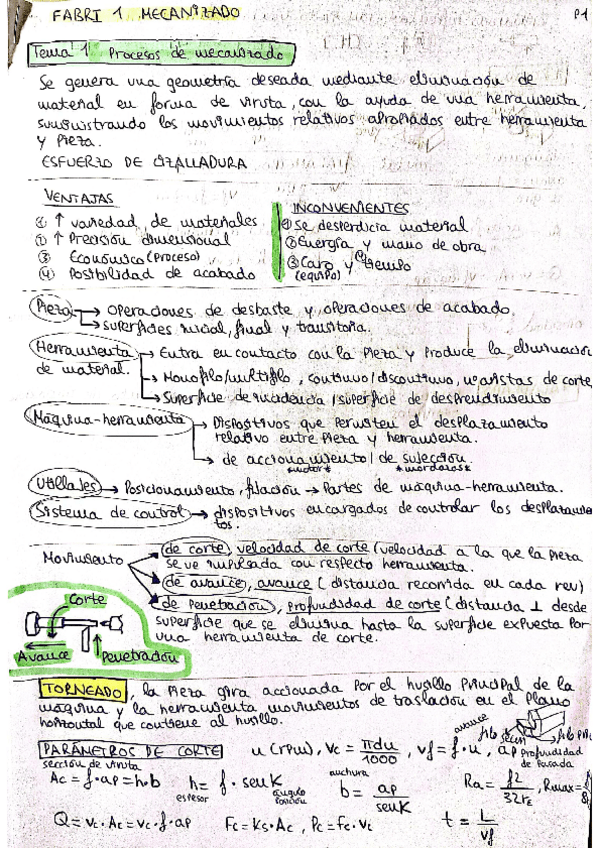 FABRI 1 MECANIZADO
P1
Tema 1 Procesos de mecanizado
Se genera una geometría deseada mediante eliminación de
material en forma de viruta, con la ayuda de una herramienta,
suministrando los movimientos relativos apropiados entre herramienta
y pieza.
ESFUERZO DE CIZALLADURA
VENTAJAS
② ↑ variedad de materiales
① ↑ Precisión dimensional
③ Económico (Proceso)
④ Posibilidad de acabado
INCONVENIENTES
① Se desperdicia material
② Energía y mano de obra
③ Caro y ④ tiempo
(equipo)
Pieza → Operaciones de desbaste y operaciones de acabado.
→ Superficies inicial, final y transitoria.
Herramienta → Entra en contacto con la Pieza y Produce la eliminación
de material.
→ Monofilo/multifilo, continuo/discontinuo, nº aristas de corte
→ Superficie de incidencia / superficie de desprendimiento
Máquina-herramienta → Dispositivos que permiten el desplazamiento
relativo entre pieza y herramienta.
→ de accionamiento / de sujeción.
*motor* *mordazas*
Utillajes → Posicionamiento, fijación → Partes de máquina-herramienta.
Sistema de control → dispositivos encargados de controlar los desplazamien
tos.
Movimiento → de corte, velocidad de corte (velocidad a la que la pieza
se ve respecto herramienta.
→ de avance, avance (distancia recorrida en cada rev)
→ de penetración, profundidad de corte (distancia ⊥ desde
superficie que se elimina hasta la superficie expuesta por
una herramienta de corte.
Corte
Avance
Penetración
TORNEADO, la pieza gira accionada por el husillo principal de la
máquina y la herramienta, movimientos de traslación en el plano
horizontal que contiene al husillo.
PARÁMETROS DE CORTE
n (rpm), Vc = πdn/1000, Vf = f·n, ap profundidad
de pasada
avance
sección de viruta
Ac = f·ap = h·b
h = f·senK
espesor
ángulo
anchura
b = ap/senK
Ra = f²/32rε, Rmax =
Q = Vc·Ac = Vc·f·ap
Fc = Ks·Ac, Pc = Fc·Vc
t = L/Vf